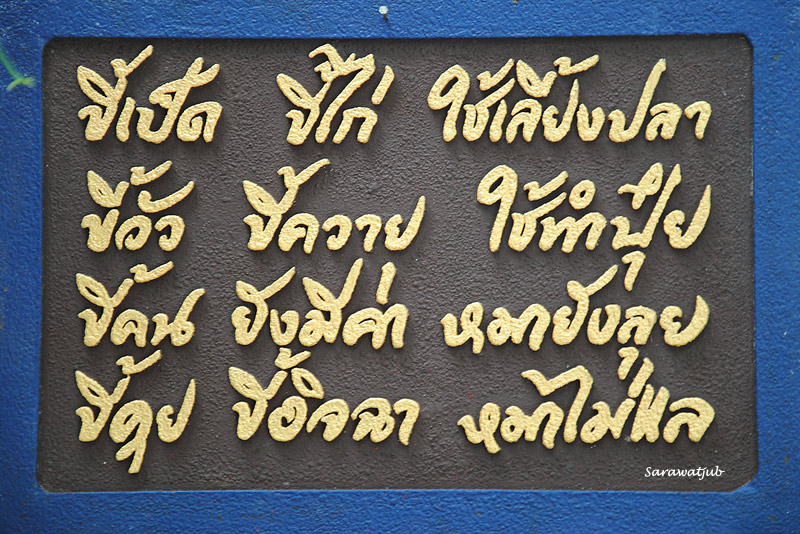 ขี้เป็ด ขี้ไก่ ใช้เลี้ยงปลา
ขี้วัว ขี้ควาย ใช้ทำปุ๋ย
ขี้คน ยังมีค่า หมายังลุย
ขี้คุย ขี้อิจฉา หมาไม่แล
Sarawatjub